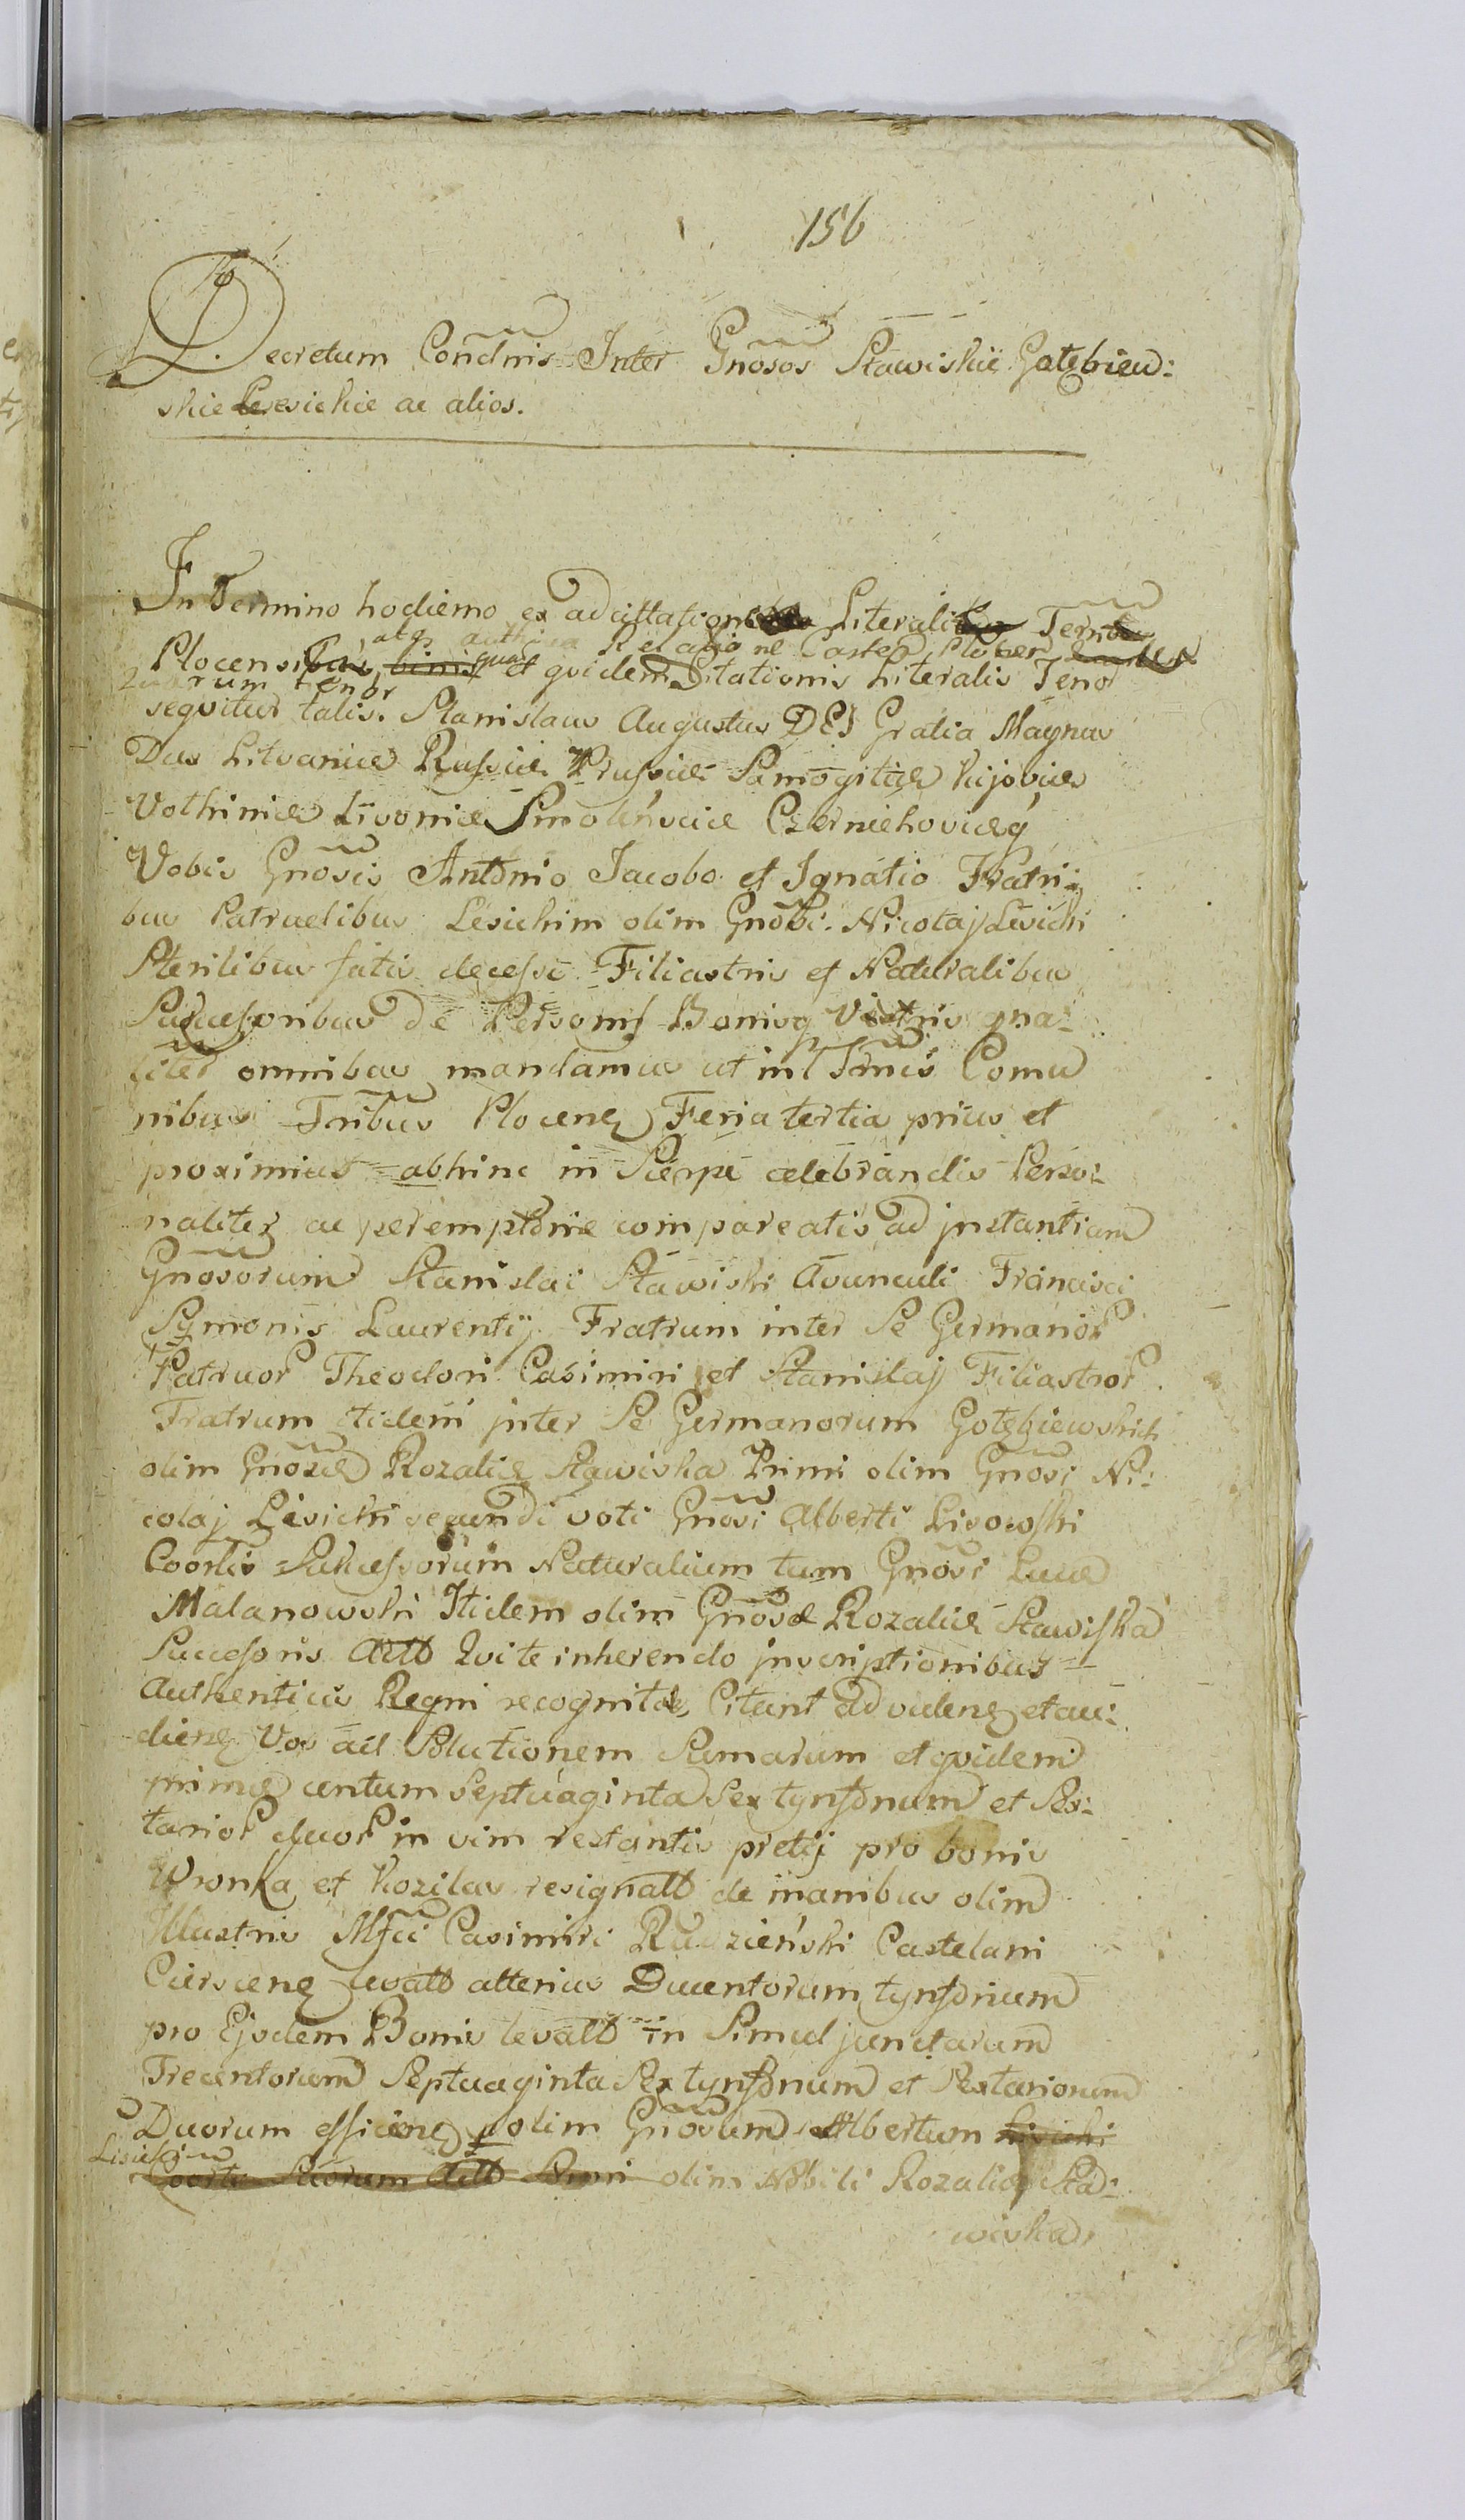 156
Decretum Condnis Inter Gnosos Stawiskie Gołębiew:
skie Lesickie ac alios.
In Termino hodierno ex adcittatione Literali Terrn
atq Relatione Castr Plocen
Plocensi binis quar et quidem Citationis Literalis Tenor
quarum tenor
sequitur talis. Stanislaus Augustus DEI Gratia Magnus
Dux Litvaniæ Russiæ Prussiæ Samogitiæ Kijoviæ
Volhiniæ Livoniæ Smolensciæ Czerniehoviæq
Vobis Gnosis Antonio Jacobo et Ignatio Fratri:
bus Patruelibus Lesickim olim Gnosi Nicolaj Lesicki
Sterilibus fatis decessi Filiastris et Naturalibus
Successoribus de Personis Bonisq Vestris gna:
liter omnibus mandamus ut in Trmis Comu
nibus Tribus Plocens Feria tertia prius et
proximius abhinc in Sierpc celebrandis Perso:
naliter ac peremptorie compareatis ad jnstantiam
Gnosorum Stanislai Stawiski Avunculi Francisci
Symonis Laurentij Fratrum inter Se Germanor
Patruor Theodori Casimiri et Stanislaj Filiastror
Fratrum itidem jnter Se Germanorum Gołębiewskich
olim Gnosæ Rozaliæ Stawiska Primi olim Gnosi Ni:
colaj Lesicki secundi voti Gnosi Alberti Lisowski
Coortis Successorum Naturalium tum Gnosi Lucæ
Malanowski Itidem olim Gnosæ Rozaliæ Stawiska
Successoris Actt Qvi te inherendo jnscriptionibus
Authenticis Regni recognitis Citant ad videns et au:
diens Vos ad Solutionem Sumarum et qvidem
primæ centum Septuaginta Sex tynfonum et Sex:
tarior duor in vim restantis pretij pro bonis
Wronka et Kozilas resignatt de manibus olim
Illustris Mfci Casimiri Rudzieński Castelani
Czerscens levatt alterius Ducentorum tynfonum
pro Ejsdem Bonis levatt in Simul junctarum
Trecentorum Septuaginta Sex tynfonum et Sextarionum
Duorum efficiens p olim Gnosum Albertum Lisicki
Lisicki
Coortis Suorum Actt Primi olim Nobili Rozaliæ Sta:
wiska